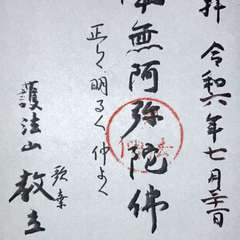 拝 令和六年七月
南無阿弥陀佛
正しく明るく仲よく
歌棄
護法山 教立